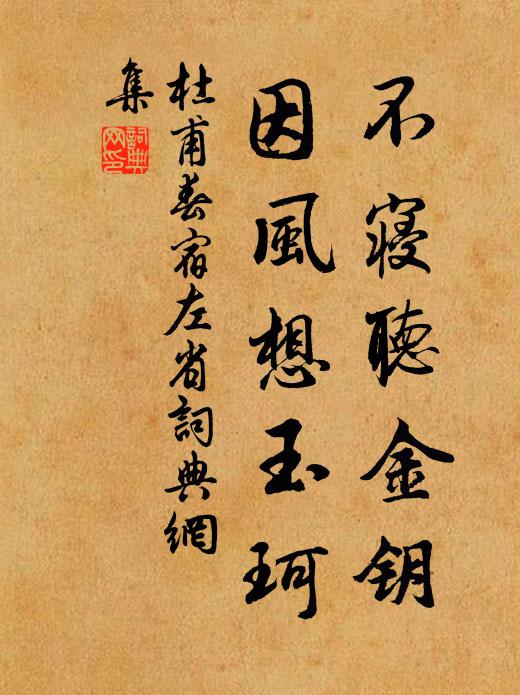 不寝聽金钥
因風想玉珂
杜甫春宿左省詞典網
集
詞典网印